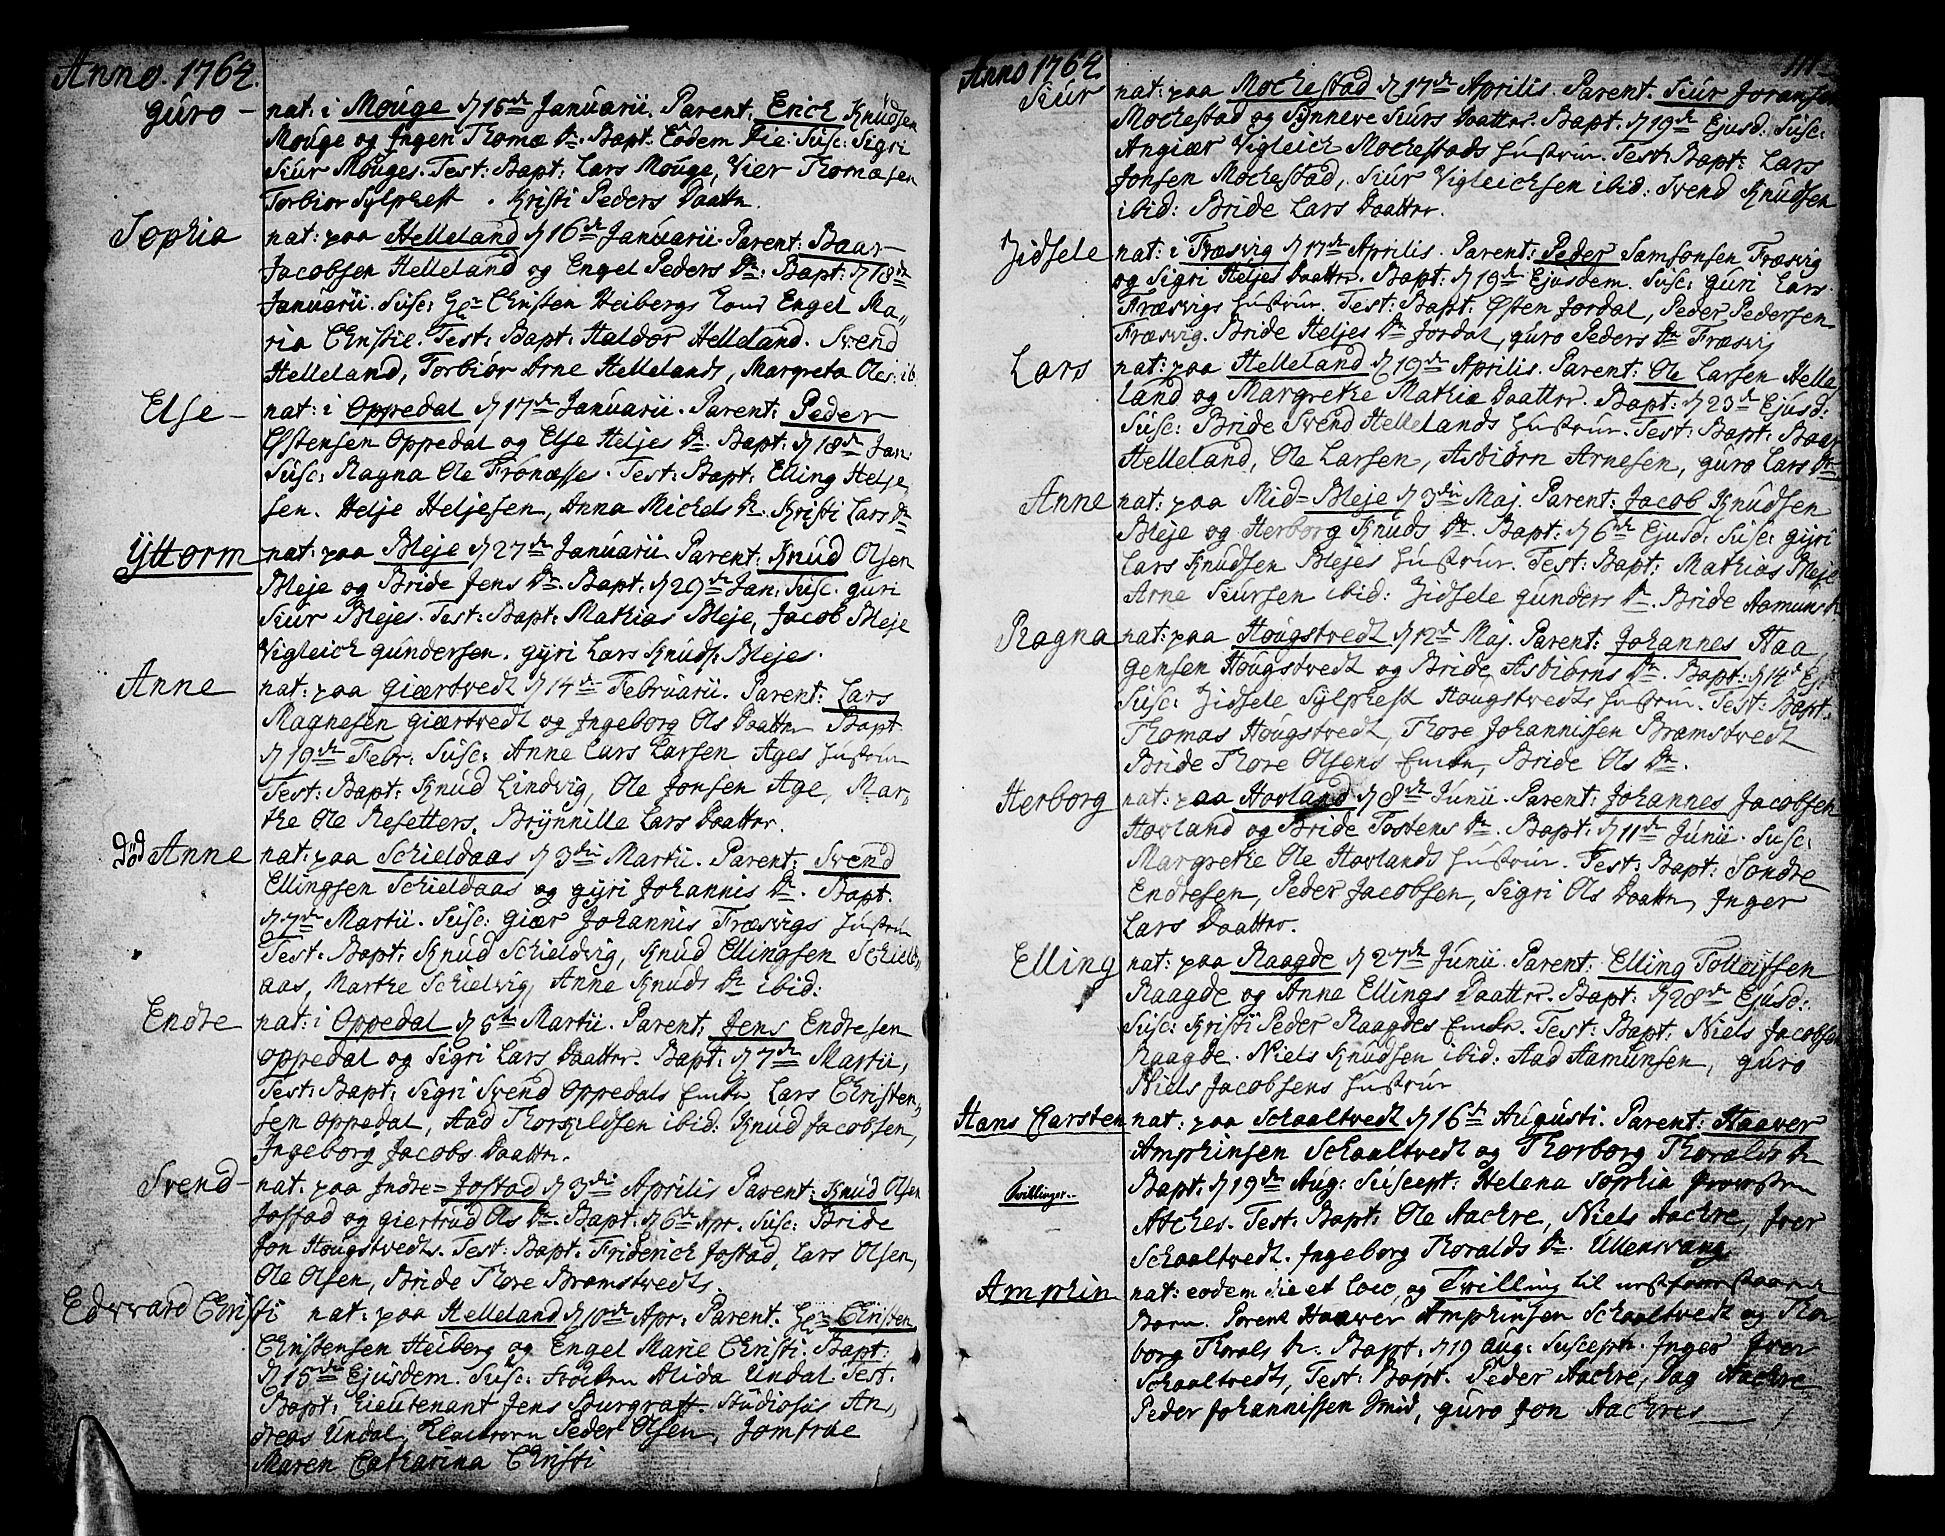 Anno. 1764.
Guro – nat: i Mouge d 16de Januarii. Parent: Erich Knudsen
Mouge og Ingen Thomæ Dr. Bapt: Eodem Die: Susc: Sigri
Siur Mouges. Test: Bapt: Lars Mouge, Vier Thomæsen
Torbior Sylphest . Kristi Peders Daattr.
Sophia nat: paa Helleland d 16de Januarii. Parent: Baar
Jacobsen Helleland og Engel Peders Dr: Bapt: d 18de
Januarii. Susc: Hr Christen Heibergs Engel Ma„
ria Christie. Test: Bapt: Haldor Helleland. Svend
Helleland, Torbiør Arne Hellelands, Margreta Oles: ib.
Else – nat: i Oppedal d 17de Januarii. Parent: Peder
Østensen Oppedal og Else Heljes Dr. Bapt: d 18de Jan:
Susc: Ragna Ole Fronæsse. Test: Bapt: Elling Helje„
sen. Helje Heljesen, Anna Michels Dr. Kristi Lars Dr
Gttorm nat: paa Bleje d 27de Januarii. Parent: Knud Olsen
Bleje og Bride Jens Dr. Bapt: d 29de Jan: Susc. Guri
Siur Blejes. Test: Bapt: Mathias Bleje, Jacob Bleje
Vigleich Gundersen. Gyri Lars Knuds: Blejes.
Anne nat: paa Giærtvedt d 14de Februarii. Parent: Lars
Magnesen Giærtvedt og Ingeborg Ols Daattr Bapt
d 19de Febr: Susc: Anne Lars Larsen Ages Hustrue
Test: Bapt: Knud Lindvig, Ole Jonsen Age, Mar„
the Ole Resetters. Brynnille Lars Daattr.
Død Anne nat: paa Schieldaas d 3die Martii. Parent: Svend
Ellingsen Schieldaas og Gyri Johannis Dr. Bapt.
d 7de Martii. Susc: Giær Johannis Træsvigs Hustrue
Test: Bapt: Knud Schieldvig, Knud Ellingsen Schield„
aas, Marthe Schielvig, Anne Knuds Dr ibid:
Endre nat: i Oppedal d 5te Martii. Parent: Jens Endresen
Oppedal og Sigri Lars Daattr. Bapt: d 7de Martii,
Test: Bapt: Sigri Svend Oppedals Lars Christen„
sen Oppedal, Aad Thorkildsen ibid: Knud Jacobsen,
Ingeborg Jacobs Daattr.
Svend – nat: paa Indre=Jostad d 3die Aprilis Parent: Knud Olsen
Jostad og Giertrud Ols Dr. Bapt: d 6te Apr. Susc: Bride
Jon Hougstvedts. Test: Bapt: Friderich Jostad, Lars Olsen,
Ole Olsen, Bride Thore Bramstvedts.
Edward Christi nat: paa Helleland d 10de Apr: Parent: Hr Christen
Christensen Heiberg og Engel Marie Christi. Bapt:
d 15de Ejusdem. Susc: Alida Undal Test:
Bapt: Lieutenant Jens Burgraff Studiosus An„
dreas Undal, Peder Olsen, Jomfrue
Maren Catharina Christi
Anno 1764.
111
Siur nat: paa Mochestad d 17de Aprilis. Parent. Siur Joransen
Mochestad og Synneve Siurs Daattr. Bapt. d 19de Ejusd. Susc:
Angiær Vigleich Mochestads Hustrue. Test: Bapt: Lars
Jonsen Mochestad, Siur Vigleichsen ibid: Svend Knudsen
ibid: Bride Lars Daattr.
Zidsele nat: i Fræsvig d 17de Aprilis. Parent: Peder Samsonsen Fræsvig
og Sigri Heljes Daattr. Bapt: d 19de Ejusdem. Susc: Guri Lars
Fræsvigs Hustrue. Test: Bapt: Østen Jordal, Peder Pedersen
Fræsvig. Bride Heljes Dr Jordal, Guro Peders Dr Fræsvig
Lars nat: paa Helleland d 19de Aprilis. Parent: Ole Larsen Helle
land og Margrethe Mathiæ Daattr. Bapt: d 23de Ejusd:
Susc: Bride Svend Hellelands Hustrue. Test: Bapt: Baar
Helleland, Ole Larsen, Asbiørn Arnesen, Guro Lars Dr
Anne nat: paa Mid=Bleje d 3die Maj. Parent: Jacob Knudsen
Bleje og Herborg Knuds Dr. Bapt: d 6te Ejusd: Susc: Gyri
Lars Knudsen Blejes Hustrue. Test: Bapt: Mathias Bleje
Arne Siursen ibid: Zidsele Gunders Dr. Bride Aamuns Dr
Ragna nat: paa Hougstvedt d 12te Maj. Parent: Johannes Haa„
gensen Hougstvedt og Bride Asbiørns Dr. Bapt: d 14de Ej:
Susc: Zidsele Sylphest Hougstvedts Hustrue. Test: Bapt:
Thomas Hougstvedt, Thore Johannissen Bramstvedt
Bride Thore Olsens Bride Ols Dr.
Herborg nat: paa Hovland d 8de Junii. Parent: Johannes Jacobsen
Hovland og Bride Tostens Dr. Bapt: d 11de Junii. Susc:
Margrethe Ole Hovlands Hustrue. Test: Bapt: Sondre
Endresen, Peder Jacobsen, Sigri Ols Daattr, Inger
Lars Daattr.
Elling nat: paa Raagde d 27de Junii. Parent: Elling Tolleifsen
Raagde og Anne Ellings Daattr. Bapt: d 28de Ejusd:
Susc: Kristi Peder Raagdes Test: Bapt: Niels Jacobsen
Raagde. Niels Knudsen ibid: Aad Aamunsen, Guro
Niels Jacobsens Hustrue
Hans Carsten nat: paa Schaaltvedt d 16de Augusti. Parent: Haaver
Amphinsen Schaaltvedt og Thorborg Thoralds Dr
Tvillinger. Bapt: d 19de Aug: Suscept: Helena Sophia
Atches. Test: Bapt: Ole Aachre, Niels Aachre, Iver
Schaaltvedt. Ingeborg Thoralds Dr. Ullensvang
Amphin nat: eodem die et loco, og Tvilling til
Barn. Parent Haaver Amphinsen Schaaltvedt og Thor
borg Thorals Dr. Bapt: d 19 Aug: Suscept: Inger Iver
Schaaltvedts, Test: Bapt. Peder Aachre, Dag Aachre
Peder Johannissen Guro Jon Aachres